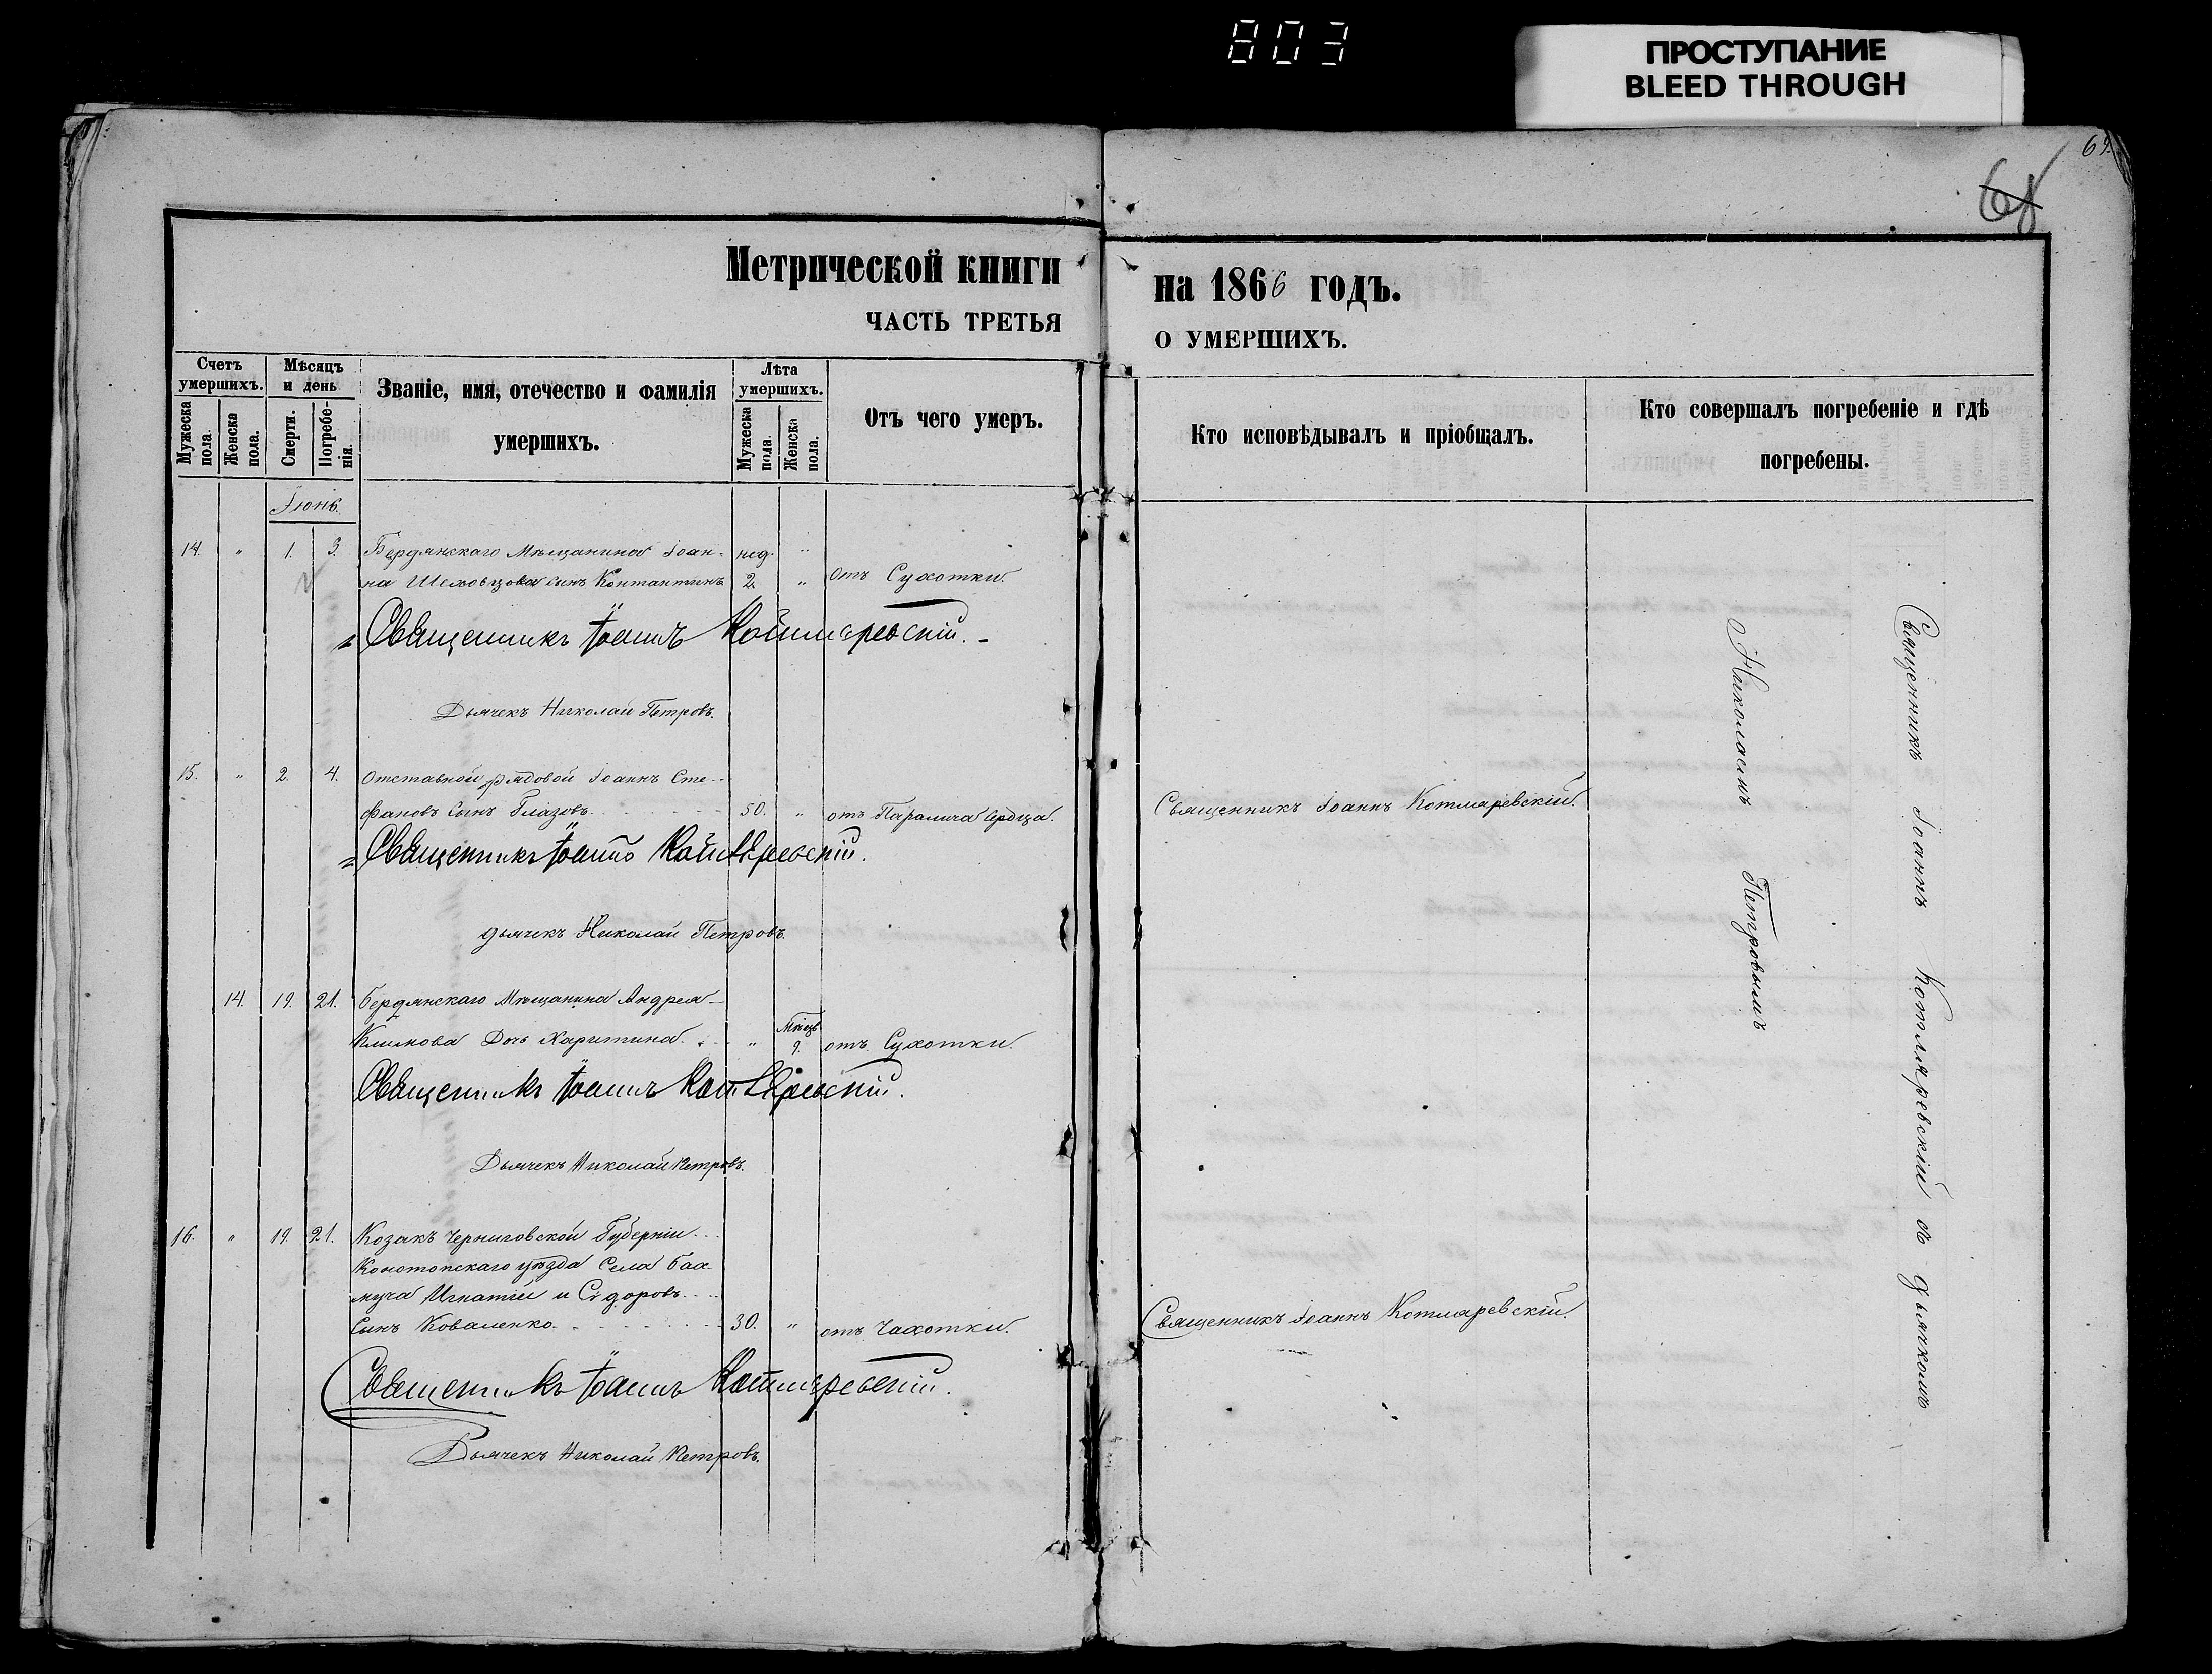 803
ПРОСТУПАНИЕ
BLEED THROUGH
69.
68
Метрической книги
на 1866 годъ.
ЧАСТЬ ТРЕТЬЯ
О УМЕРШИХЪ.
Счетъ умершихъ.
Мужеска пола.
Женска пола.
Мѣсяцъ и день
Смерти.
Погребе-нія.
Званіе, имя, отечество и фамилія
умершихъ.
Лѣта умершихъ.
Мужеска пола.
Женска пола.
Отъ чего умеръ.
Кто исповѣдывалъ и пріобщалъ.
Кто совершалъ погребеніе и гдѣ
погребены.
Іюнь.
14. " 1. 3. Бердянскаго Мѣщанина Іоан- нед. "
на Шеховцова сынъ Контантинъ 2. " Отъ Сухотки.
Священникъ Іоаннъ Котляревскій.
Дьячекъ Николай Петровъ.
15. " 2. 4. Отставной рядовой Іоаннъ Сте-
фановъ Сынъ Глазовъ. 50. " отъ Паралича Сердца. Священникъ Іоаннъ Котляревскій.
Священникъ Іоаннъ Котляревскій.
дьячекъ Николай Петровъ.
14. 19. 21. Бердянскаго Мѣщанина Андрея
Климова Дочь Харитина. " Мѣсцъ 9. отъ Сухотки.
Священникъ Іоаннъ Котляревскій.
Дьячекъ Николай Петровъ.
16. " 19. 21. Козакъ Черниговской Губерніи
Конотопскаго уѣзда Села Бах-
мача Игнатій и Сидоровъ
Сынъ Коваленко. 30. " отъ Чахотки. Священникъ Іоаннъ Котляревскій.
Священникъ Іоаннъ Котляревскій.
Дьячекъ Николай Петровъ.
Священникъ Іоаннъ Котляревскій съ дьячкомъ
Николаемъ Петровымъ